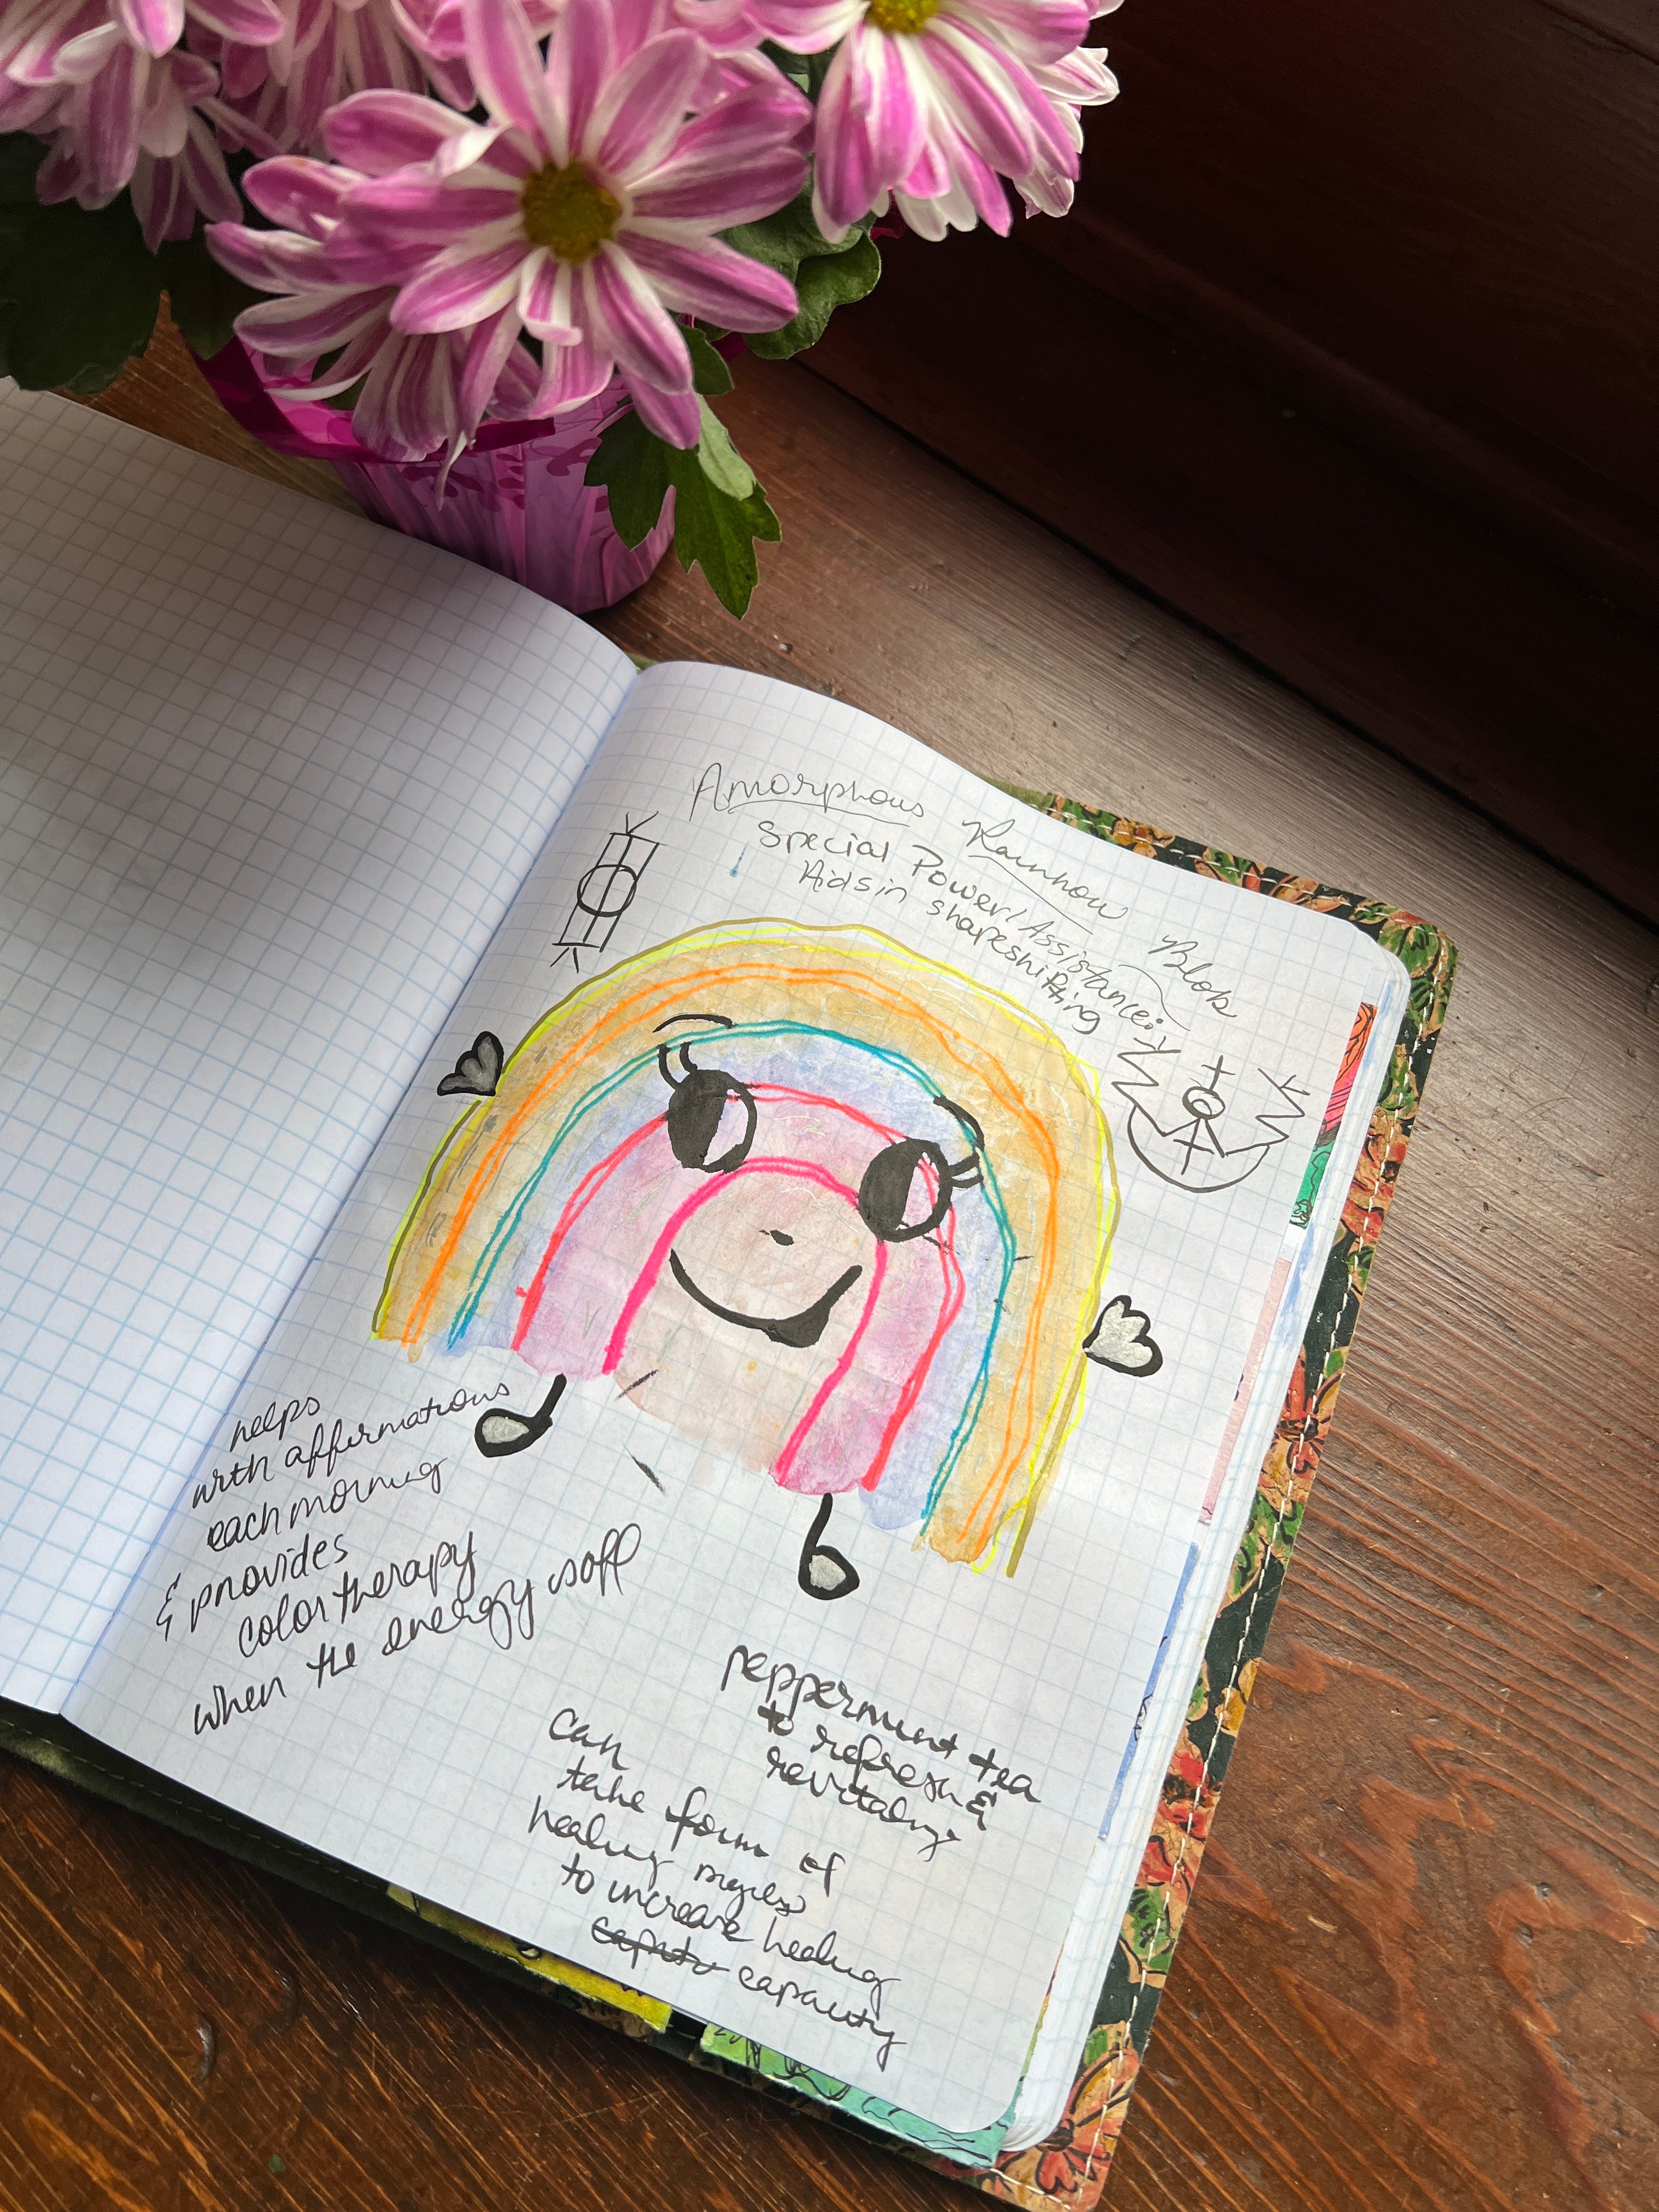 Amorphous Rainbow Blob
Special Power/Assistance:
Aids in shapeshifting
helps
with affirmations
each morning
& provides
color therapy
when the energy is off
peppermint tea
to refresh &
revitalize
can
take form of
healing
to increase healing
capacity